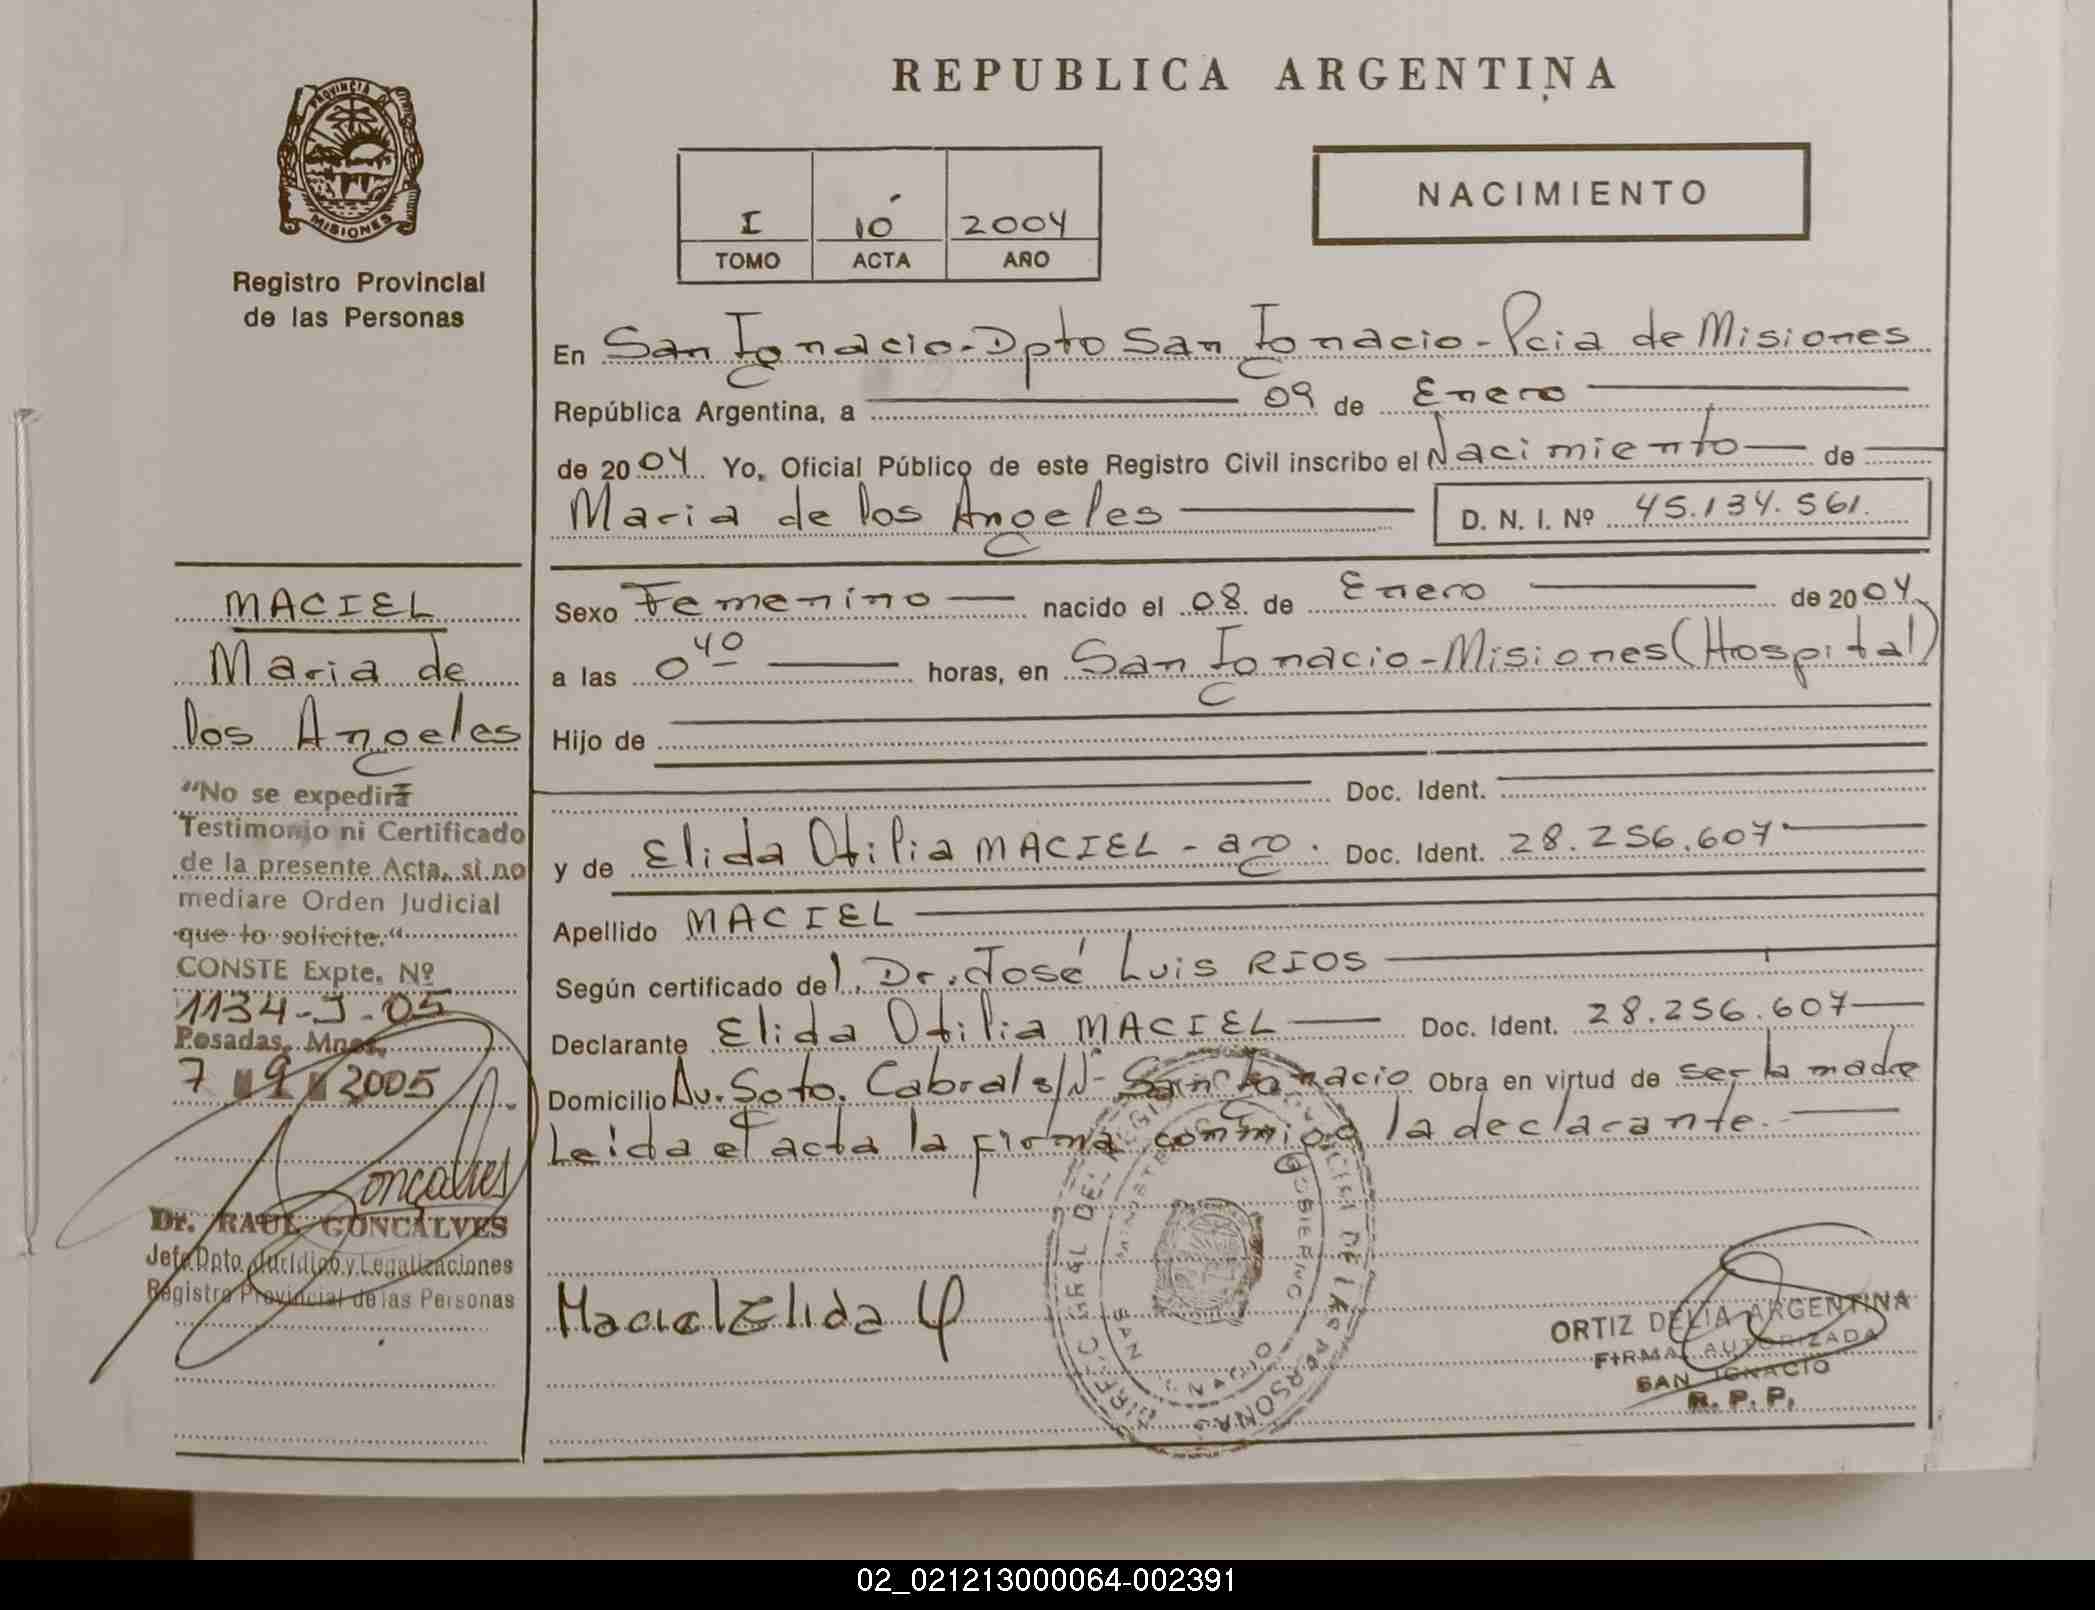 REPUBLICA ARGENTINA
PROVINCIA DE
MISIONES
Registro Provincial
de las Personas
I 10 2004
TOMO ACTA AÑO
NACIMIENTO
En San Ignacio - Dpto San Ignacio - Pcia de Misiones
República Argentina, a 09 de Enero
de 2004 Yo, Oficial Público de este Registro Civil inscribo el Nacimiento de
Maria de los Angeles D. N. I. Nº 45.134.561.
Sexo Femenino nacido el 08 de Enero de 2004
a las 0 40 horas, en San Ignacio - Misiones (Hospital)
Hijo de
Doc. Ident.
y de Elida Otilia MACIEL - arg. Doc. Ident. 28.256.607
Apellido MACIEL
Según certificado del Dr. José Luis RIOS
Declarante Elida Otilia MACIEL Doc. Ident. 28.256.607
Domicilio Av. Sgto. Cabral s/Nº San Ignacio Obra en virtud de ser la madre
Leida el acta la firma conmigo la declarante.
Maciel Elida
ORTIZ DELIA ARGENTINA
FIRMA AUTORIZADA
SAN IGNACIO
R. P. P.
MACIEL
Maria de
los Angeles
"No se expedirá
Testimonio ni Certificado
de la presente Acta, si no
mediare Orden Judicial
que lo solicite."
CONSTE Expte. Nº
1134-J-05
Posadas, Mnes.
7 9 2005
Goncalves
Dr. RAUL GONCALVES
Jefe Dpto. Jurídico y Legalizaciones
Registro Provincial de las Personas
02_021213000064-002391